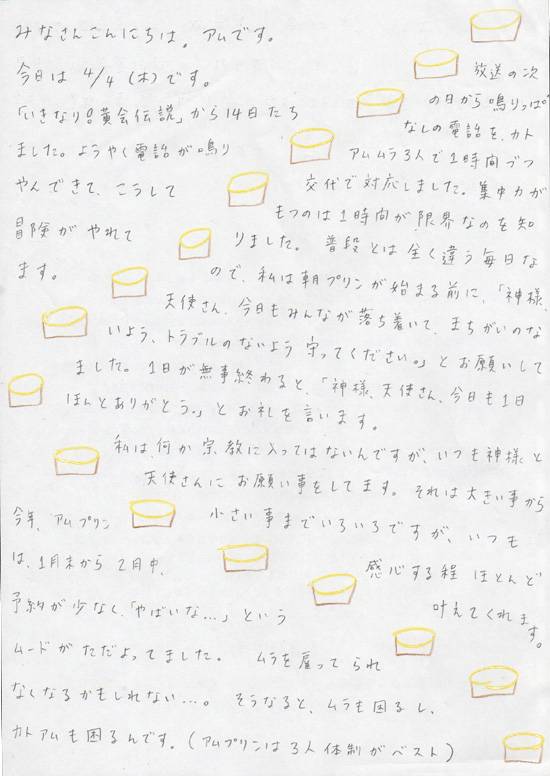 みなさんこんにちは。アムです。
今日は 4/4 (木) です。
「いきなり!黄金伝説」から14日たち
ました。ようやく電話が鳴り
やんできて、こうして
冒険がやれて
ます。
放送の次
の日から鳴りっぱ
なしの電話を、カト
アムムラ3人で1時間づつ
交代で対応しました。集中力が
もつのは1時間が限界なのを知
りました。普段とは全く違う毎日な
ので、私は朝プリンが始まる前に、「神様、
天使さん、今日もみんなが落ち着いて、まちがいのな
いよう、トラブルのないよう守ってください。」とお願いして
ました。1日が無事終わると、「神様、天使さん、今日も1日
ほんとありがとう。」とお礼を言います。
私は、何か宗教に入ってはないんですが、いつも神様と
天使さんにお願い事をしてます。それは大きい事から
小さい事までいろいろですが、いつも
感心する程ほとんど
叶えてくれま
す。
今年、アムプリン
は、1月末から2月中、
予約が少なく、「やばいな...」という
ムードがただよってました。ムラを雇ってられ
なくなるかもしれない...。そうなると、ムラも困るし、
カトアムも困るんです。(アムプリンは3人体制がベスト)